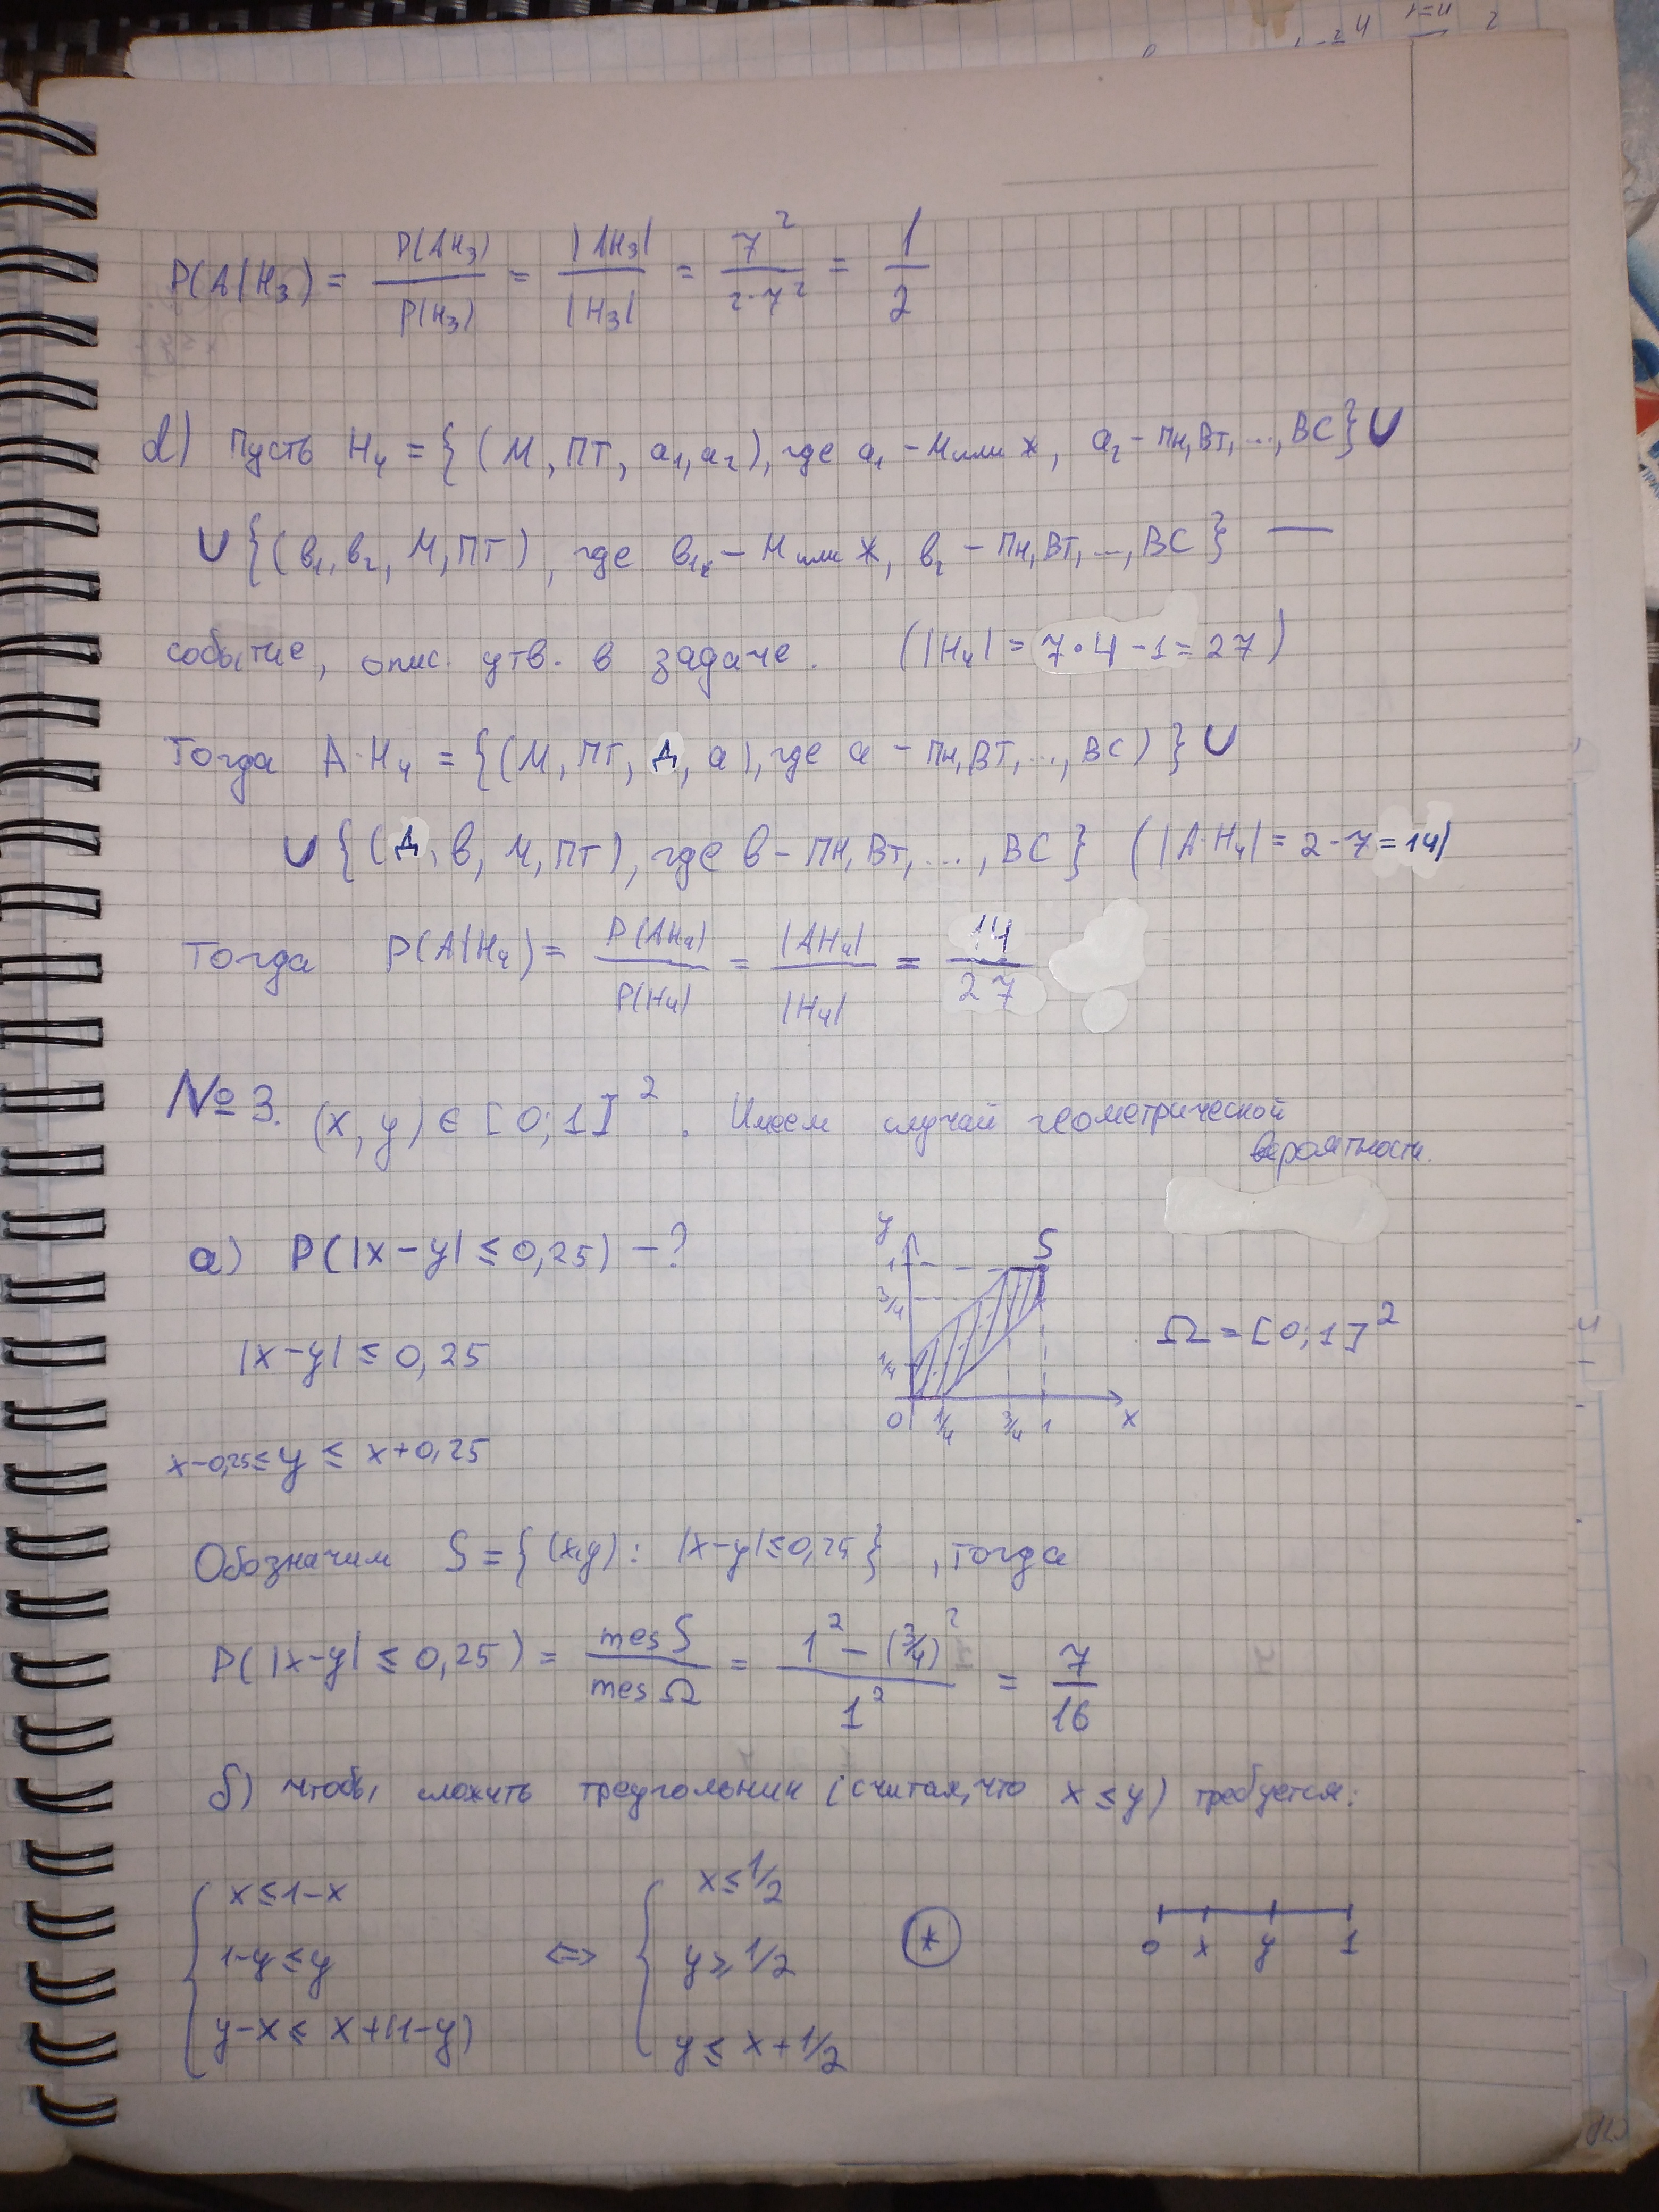 P(A|H₃) = P(AH₃)/P(H₃) = |AH₃|/|H₃| = 7²/(2·7²) = 1/2
d) Пусть H₄ = {(М, ПТ, a₁, a₂), где a₁ – М или Ж, a₂ – ПН, ВТ, ..., ВС} ∪
∪ {(в₁, в₂, М, ПТ), где в₁ – М или Ж, в₂ – ПН, ВТ, ..., ВС} —
событие, опис. утв. в задаче. (|H₄| = 7·4 – 1 = 27)
Тогда A·H₄ = {(М, ПТ, Д, a), где a – ПН, ВТ, ..., ВС)} ∪
∪ {(Д, в, М, ПТ), где в – ПН, ВТ, ..., ВС} (|A·H₄| = 2·7 = 14)
Тогда P(A|H₄) = P(AH₄)/P(H₄) = |AH₄|/|H₄| = 14/27
№3. (x, y) ∈ [0; 1]². Имеем случай геометрической
вероятности.
a) P(|x – y| ≤ 0,25) – ?
y S
1
3/4
1/4
0 1/4 3/4 1 x
Ω = [0; 1]²
|x – y| ≤ 0,25
x – 0,25 ≤ y ≤ x + 0,25
Обозначим S = {(x,y): |x – y| ≤ 0,25}, тогда
P(|x – y| ≤ 0,25) = mes S/mes Ω = (1² – (3/4)²)/1² = 7/16
б) чтобы сложить треугольник (считая, что x ≤ y) требуется:
{ x ≤ 1 – x
1 – y ≤ y
y – x ≤ x + (1 – y)
⇔ { x ≤ 1/2
y ≥ 1/2
y ≤ x + 1/2
*
0 x y 1